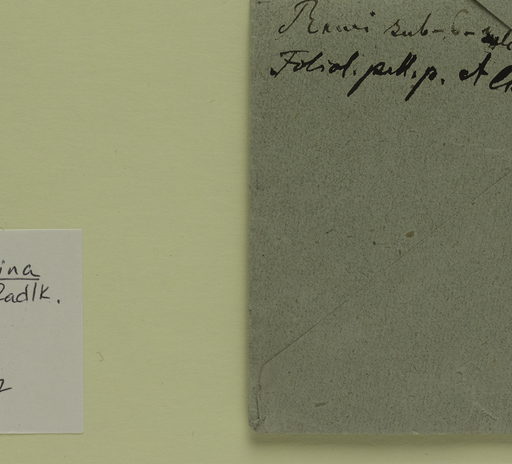 Rami sub-6-
Foliol. pell. p. et
ina
Radlk.